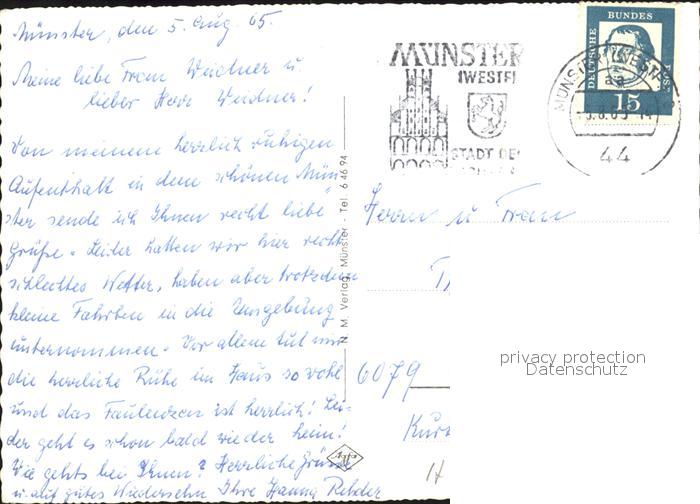 Münster, den 5. Aug. 65.
Meine liebe Frau Weidner u.
lieber Herr Weidner!
Von meinem herrlich ruhigen
Aufenthalt in dem schönen Mün-
ster sende ich Ihnen recht liebe
Grüße. Leider hatten wir hier recht
schlechtes Wetter, haben aber trotzdem
kleine Fahrten in die Umgebung
unternommen. Vor allem tut mir
die herrliche Ruhe im Haus so wohl
und das Faulenzen ist herrlich! Lei-
der geht es schon bald wieder heim!
Wie gehts bei Ihnen? Herrliche Grüsse
u. auf gutes Wiedersehn Ihre Hanna Rehder
N. M. Verlag, Münster · Tel. 6 46 94
MÜNSTER
(WESTF)
STADT DE
DEUTSCHE
BUNDES
POST
15
MÜNSTER (WESTF)
aa
44
Herrn u Frau
6079
Kurs
H
privacy protection
Datenschutz